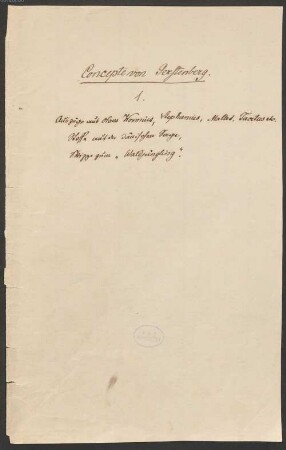 Concepte von Gerstenberg.
1.
Auszüge aus Olaus Wormius, Stephanius, Mallet, Tacitus etc.
Stoffe aus der dänischen Sage.
Skizze zum „Waljüngling“.